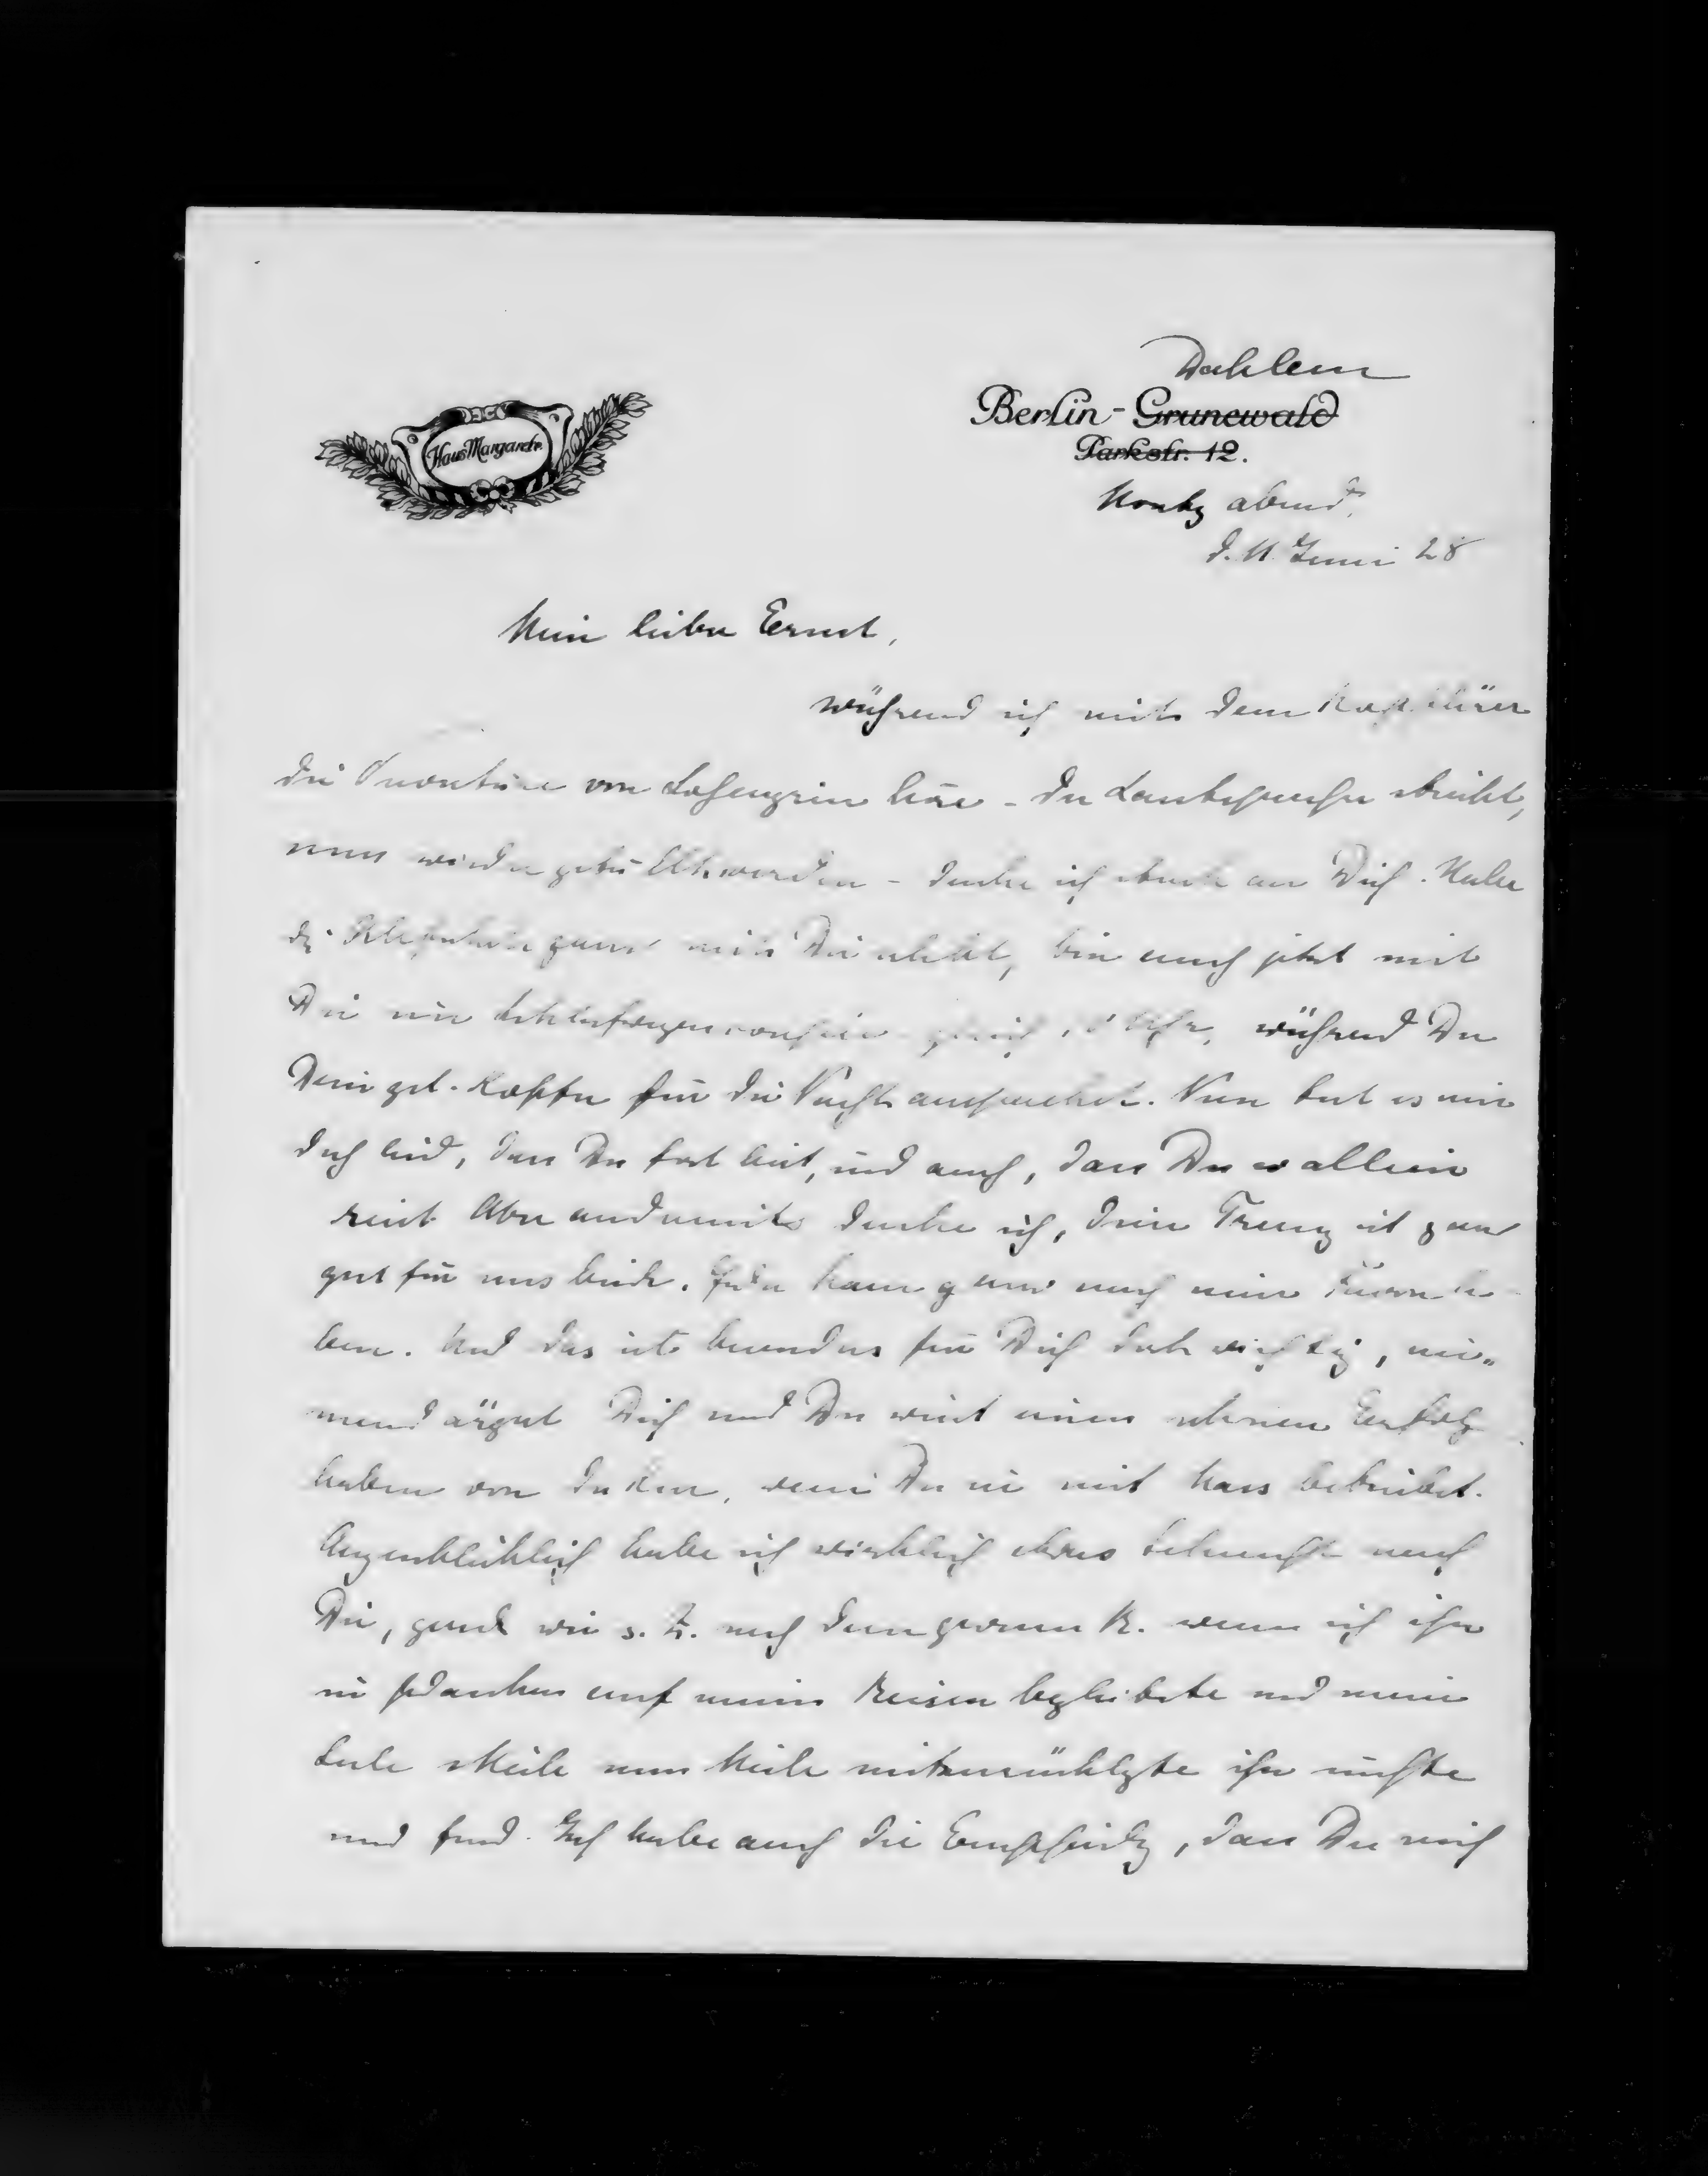 Dahlem
Haus Margarete
Berlin - Grunewald
Parkstr. 12.
Montg abend,
d. 11. Juni 28
Mein lieber Ernst,
während ich mit dem Kopfhörer
die Ouvertüre von Lohengrin höre - der Lautsprecher streikt,
muss wieder werden - denke ich stark an Dich. Habe
die ganz mit Dir, bin auch jetzt mit
Dir im Uhr, während Du
Dein gel. Koffer für die Nacht auspackst. Nun tut es mir
doch leid, dass Du fort bist, und auch, dass Du so allein
reist. Aber andrerseits denke ich, diese Treng ist ganz
gut für uns beide. Jeder kann ganz nach seiner
ben. Und das ist besonders für Dich doch wichtig, nie-
mand ärgert Dich und Du wirst einen schönen Erfolg
haben von der Kur, wenn Du sie mit Mass betreibst.
Augenblicklich habe ich wirklich etwas Sehnsucht nach
Dir, grade wie s. Z. nach dem grossen K. wenn ich ihn
in Gedanken auf seinen Reisen begleitete und meine
Seele Meile um Meile mitzurücklegte ihn suchte
und fand. Ich habe auch die Empfindg, dass Du mich